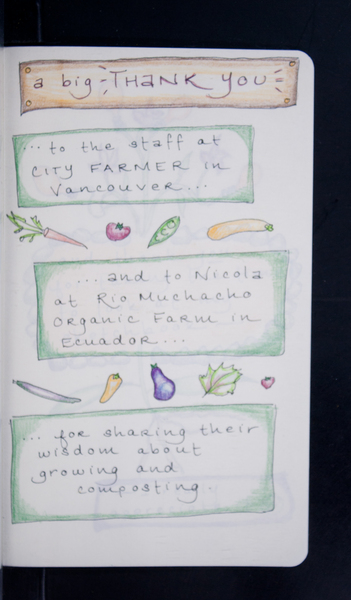 a big THANK YOU
... to the staff at
CITY FARMER in
Vancouver...
...and to Nicola
at Rio Muchacho
Organic Farm in
Ecuador...
... for sharing their
wisdom about
growing and
composting.